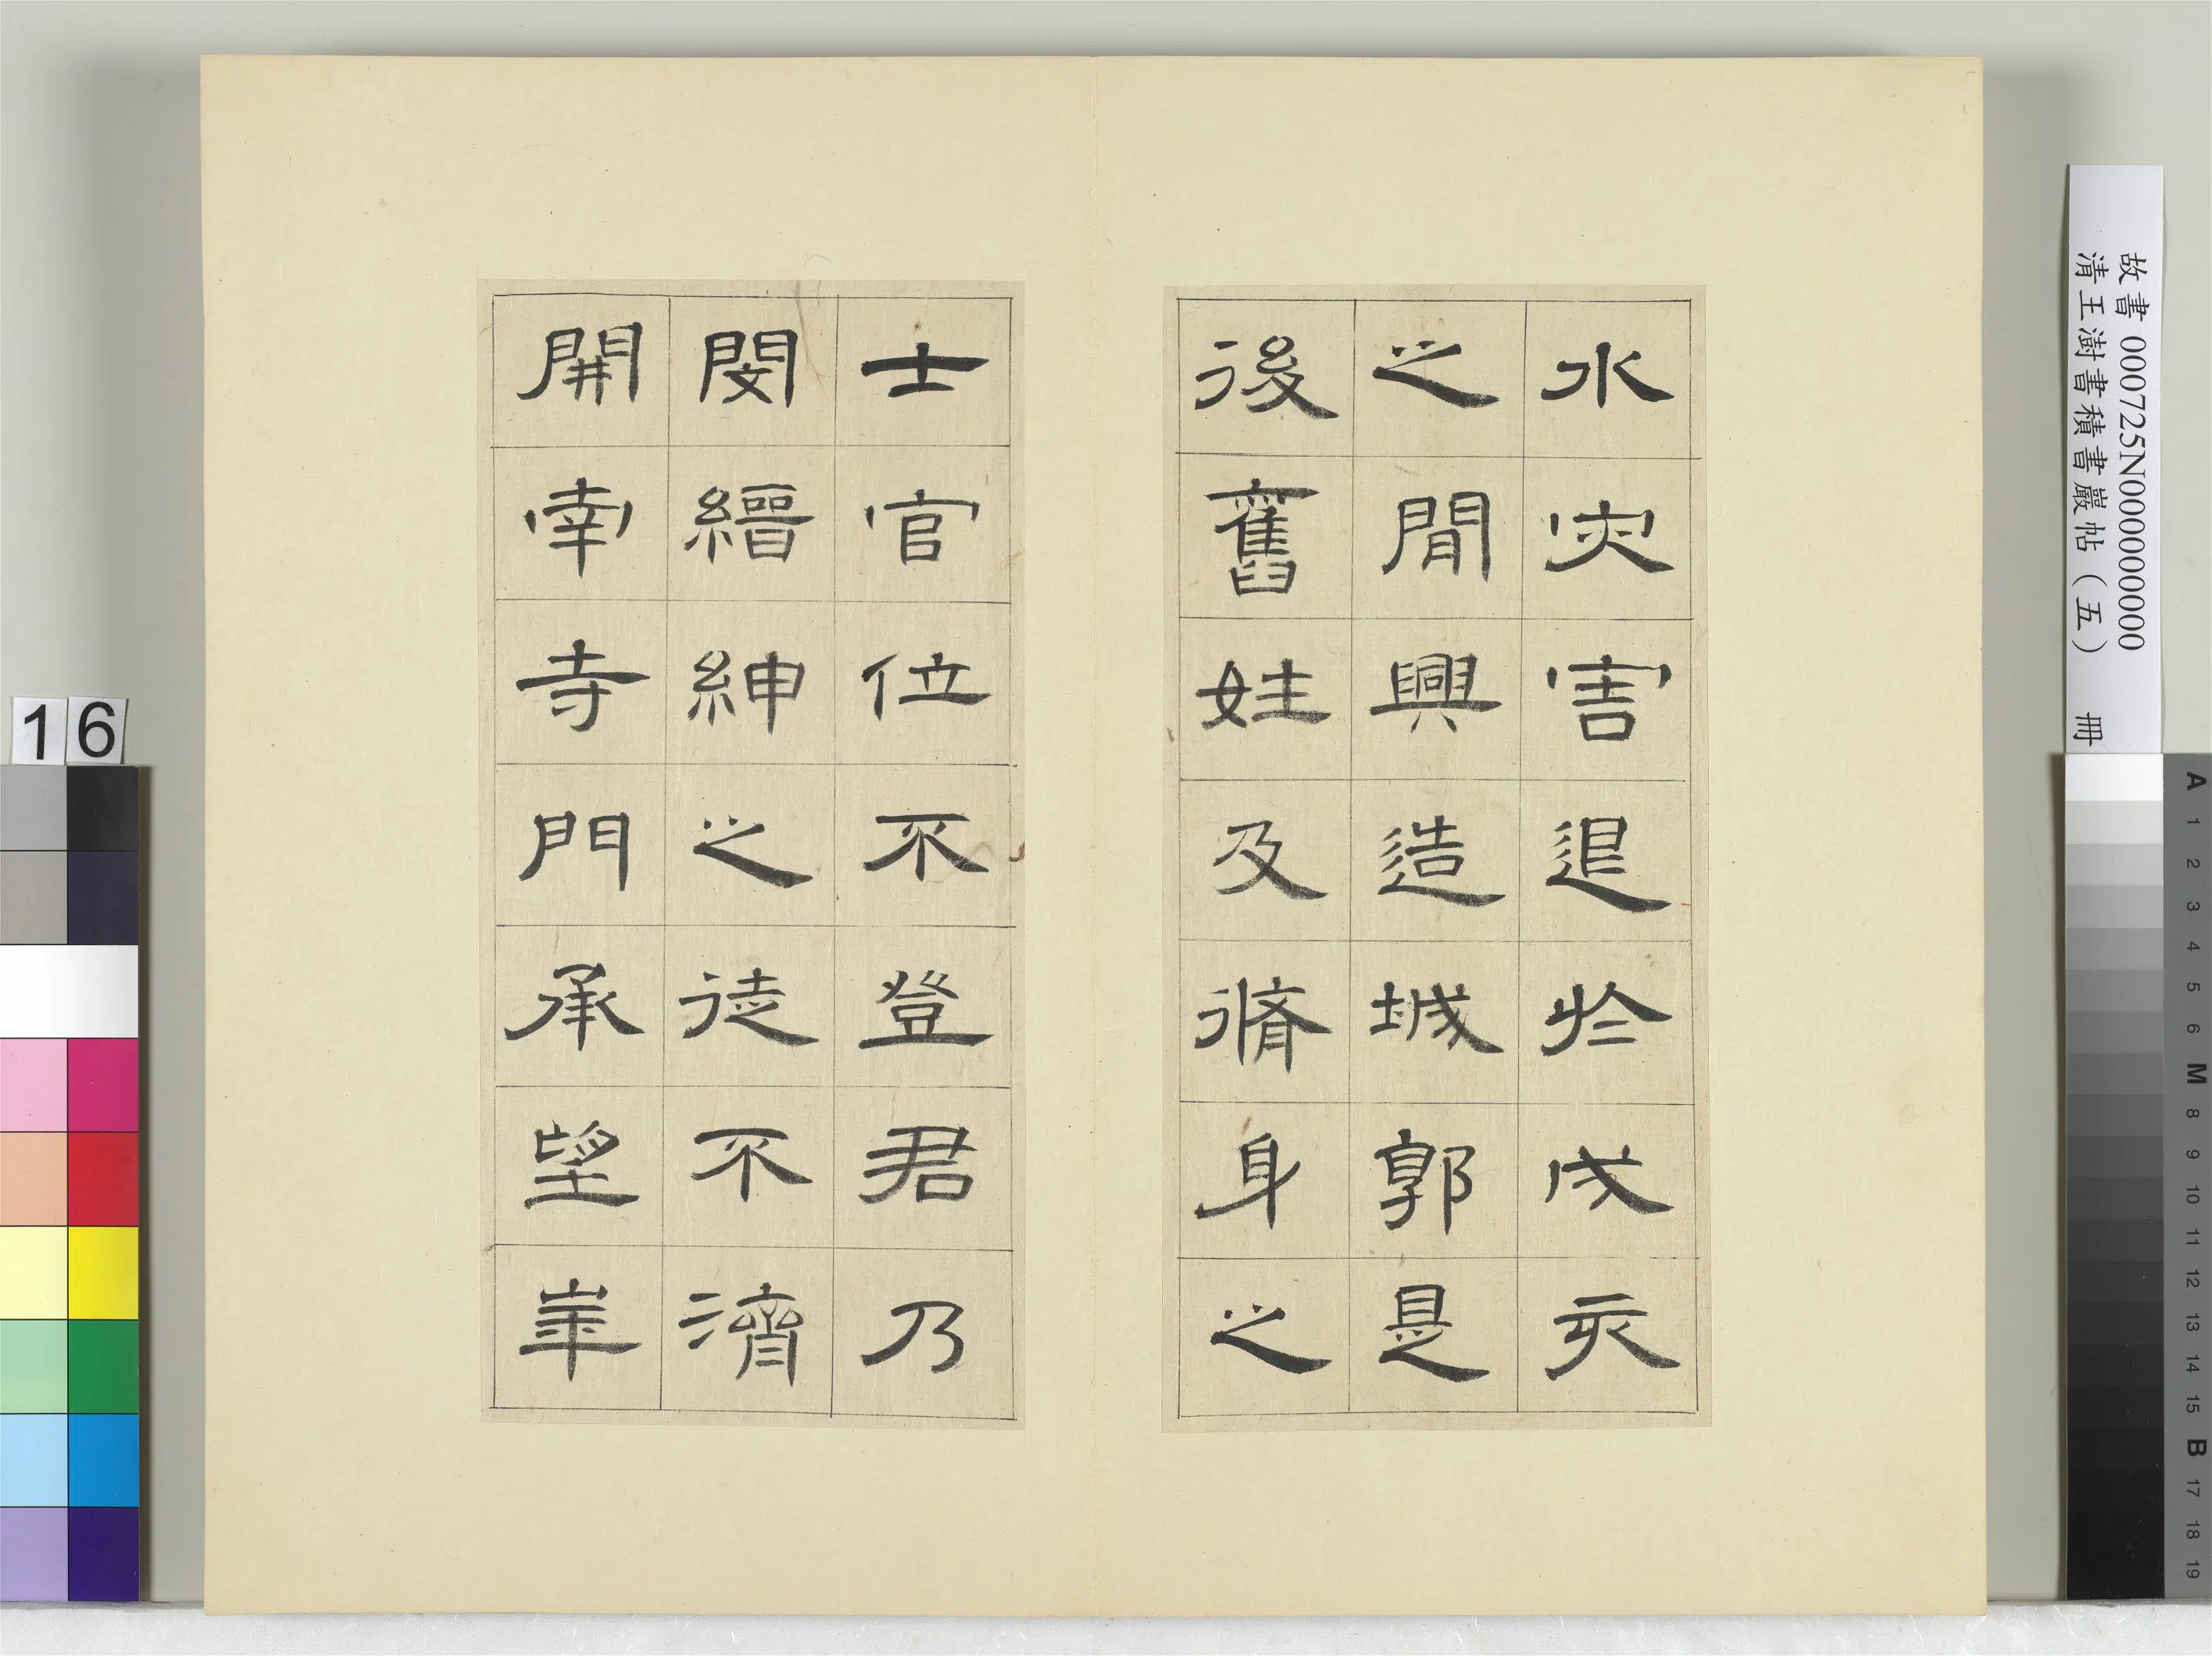 水灾害退於戍亥
之間興造城郭是
後舊姓及脩身之
士官位不登君乃
閔縉紳之徒不濟
開寺門承望
故書000725N000000000
清王澍書積書巖帖（五） 冊
16
A 1 2 3 4 5 6 M 8 9 10 11 12 13 14 15 B 17 18 19